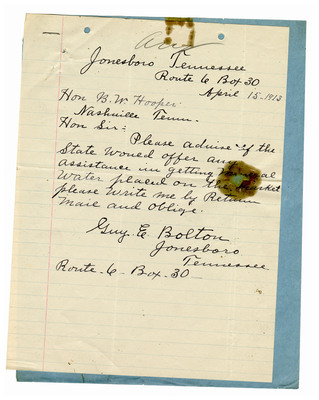 Jonesboro Tennessee
Route 6 Box 30
April 15-1913
Hon B. W. Hooper.
Nashville Tenn.
Hon Sir:
Please advise if the
State woued offer any
assistance in getting
Water placed on the Market
please write me by Return
Maie and Oblige.
Guy. E. Bolton
Jonesboro
Tennessee
Route-6-Box-30